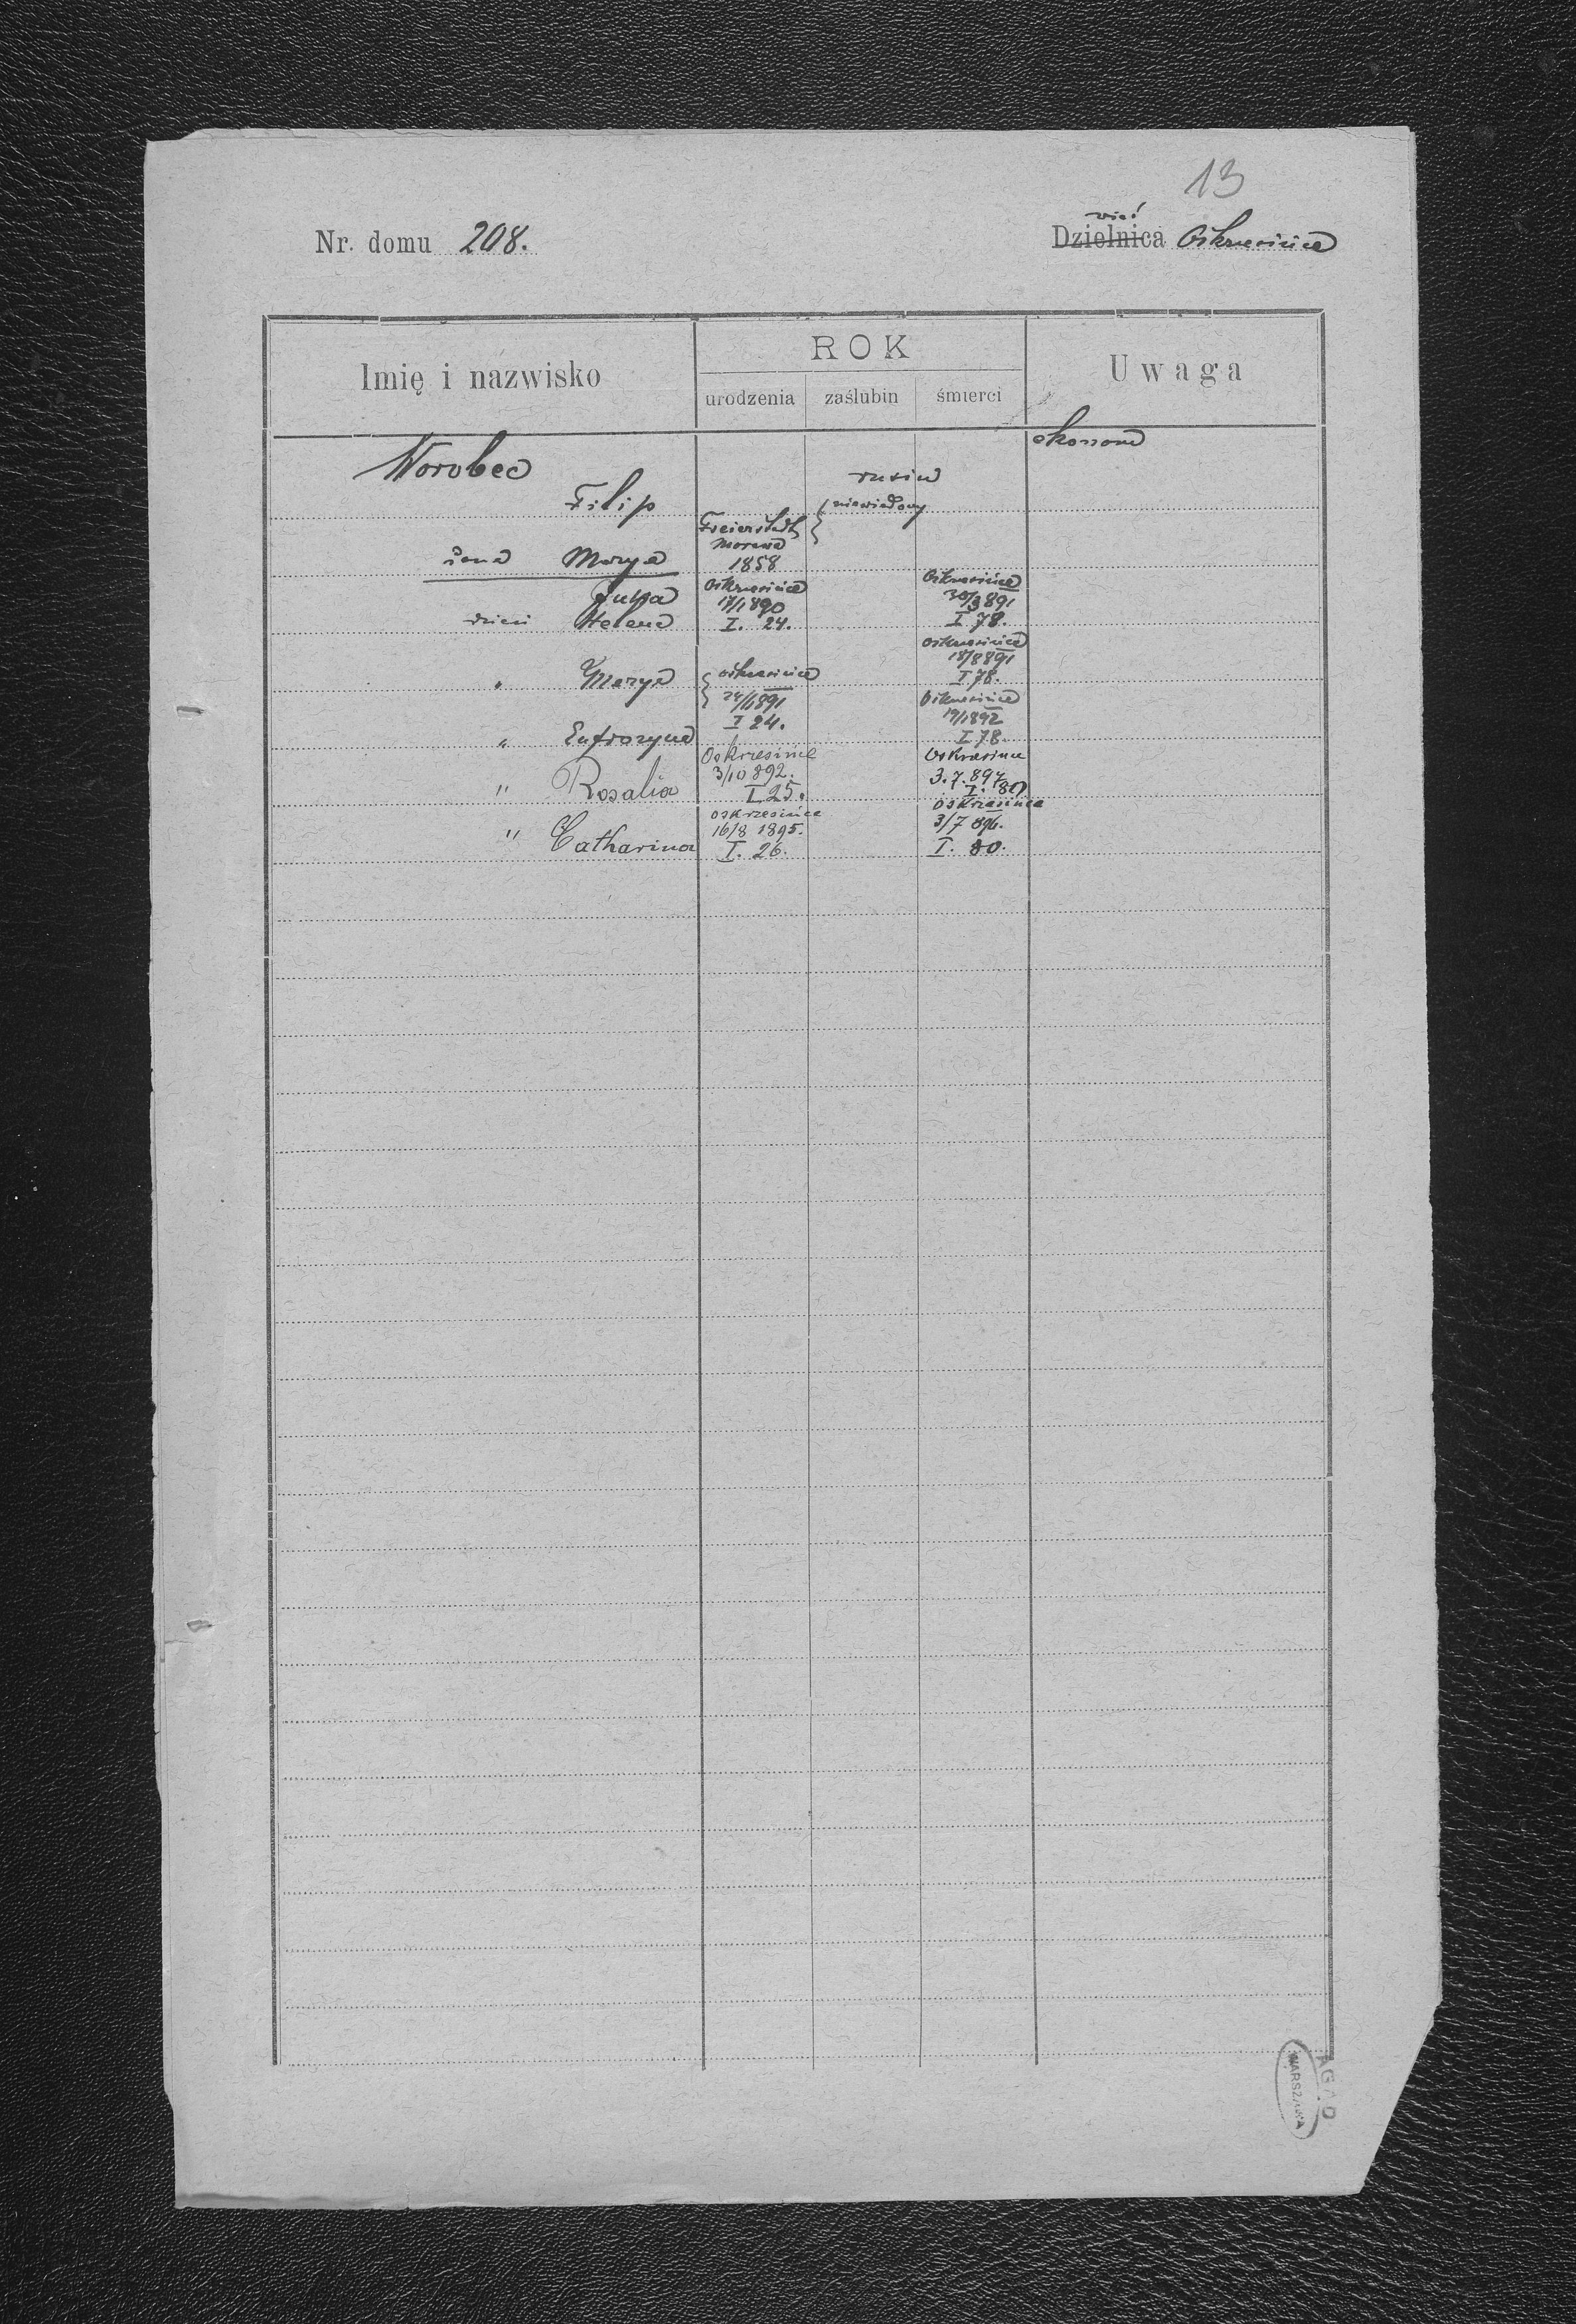 13
Nr. domu 208.
wieś
Dzielnica Oskrzesińce
Imię i nazwisko
ROK
urodzenia
zaślubin
śmierci
Uwaga
ekonom
Worobec
Filip
rusin
niewiadomy
Freierstadt
Morawa
żona Marya 1858
Oskrzesińce
17/1 890
dzieci Helena I. 24.
Oskrzesińce
30/3 891
I 78.
" Marya
Oskrzesińce
24/1 891
I 24.
Oskrzesińce
18/8 891
I 78.
" Eufrozyna
Oskrzesińce
19/1 892
I 78.
" Rosalia
Oskrzesińce
3/10 892.
I 25.
Oskrzesince
3.7.897
I. 80
" Catharina
Oskrzesińce
16/8 1895.
I. 26.
Oskrzesińce
3/7 896.
I. 80.
AGAD
WARSZAWA